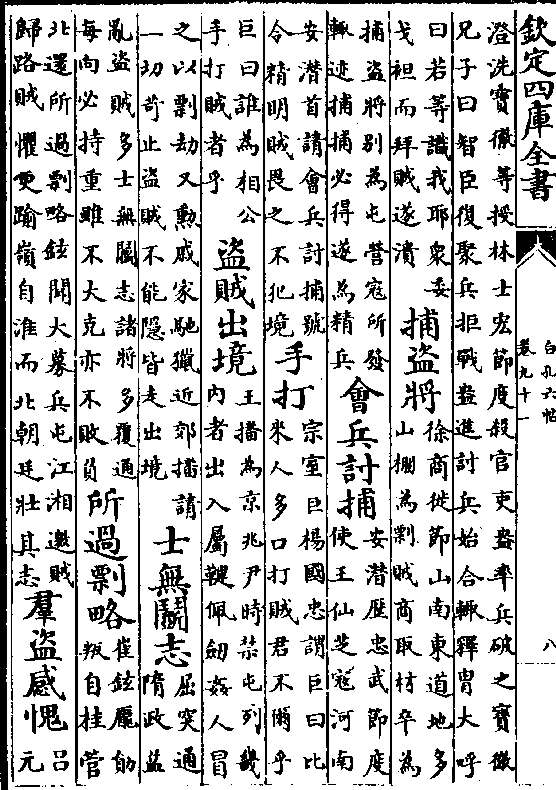 欽定四庫全書
澄洗寶徹等授林士宏節度殺官吏盎率兵破之寶徹
兄子曰智臣復聚兵拒戰盎進討兵始合輙釋胄大呼
曰若等識我耶衆委
戈袒而拜賊遂潰
捕盜將
徐商徙節山南東道地多
山棚為剽賊商取材卒為
捕盜將别為屯營寇所發
輙迹捕捕必得遂為精兵
會兵討捕
安潛歷忠武節度
使王仙芝寇河南
安潛首請會兵討捕號
令精明賊畏之不犯境
手打
宗室巨楊國忠謂巨曰比
來人多口打賊君不爾乎
巨曰誰為相公
手打賊者乎
盜賊出境
王播為京兆尹時禁屯列畿
內者出入屬鞬佩劒姦人冒
之以剽劫又勳戚家馳獵近郊播請
一切苛止盜賊不能隱皆走出境
士無鬭志
屈突通
隋政益
亂盜賊多士無鬭志諸將多覆通
每向必持重雖不大克亦不敗負
所過剽略
崔鉉龐勛
叛自桂管
北還所過剽略鉉聞大募兵屯江湘邀賊
歸路賊懼更踰嶺自淮而北朝廷壯其志
羣盜感愧
呂
元
白孔六帖
卷九十一
八